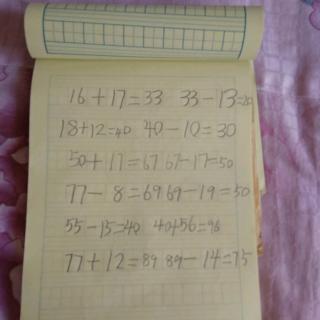 16+17=33 33-13=20
18+12=40 40-10=30
50+17=67 67-17=50
77-8=69 69-19=50
55-15=40 40+56=96
77+12=89 89-14=75